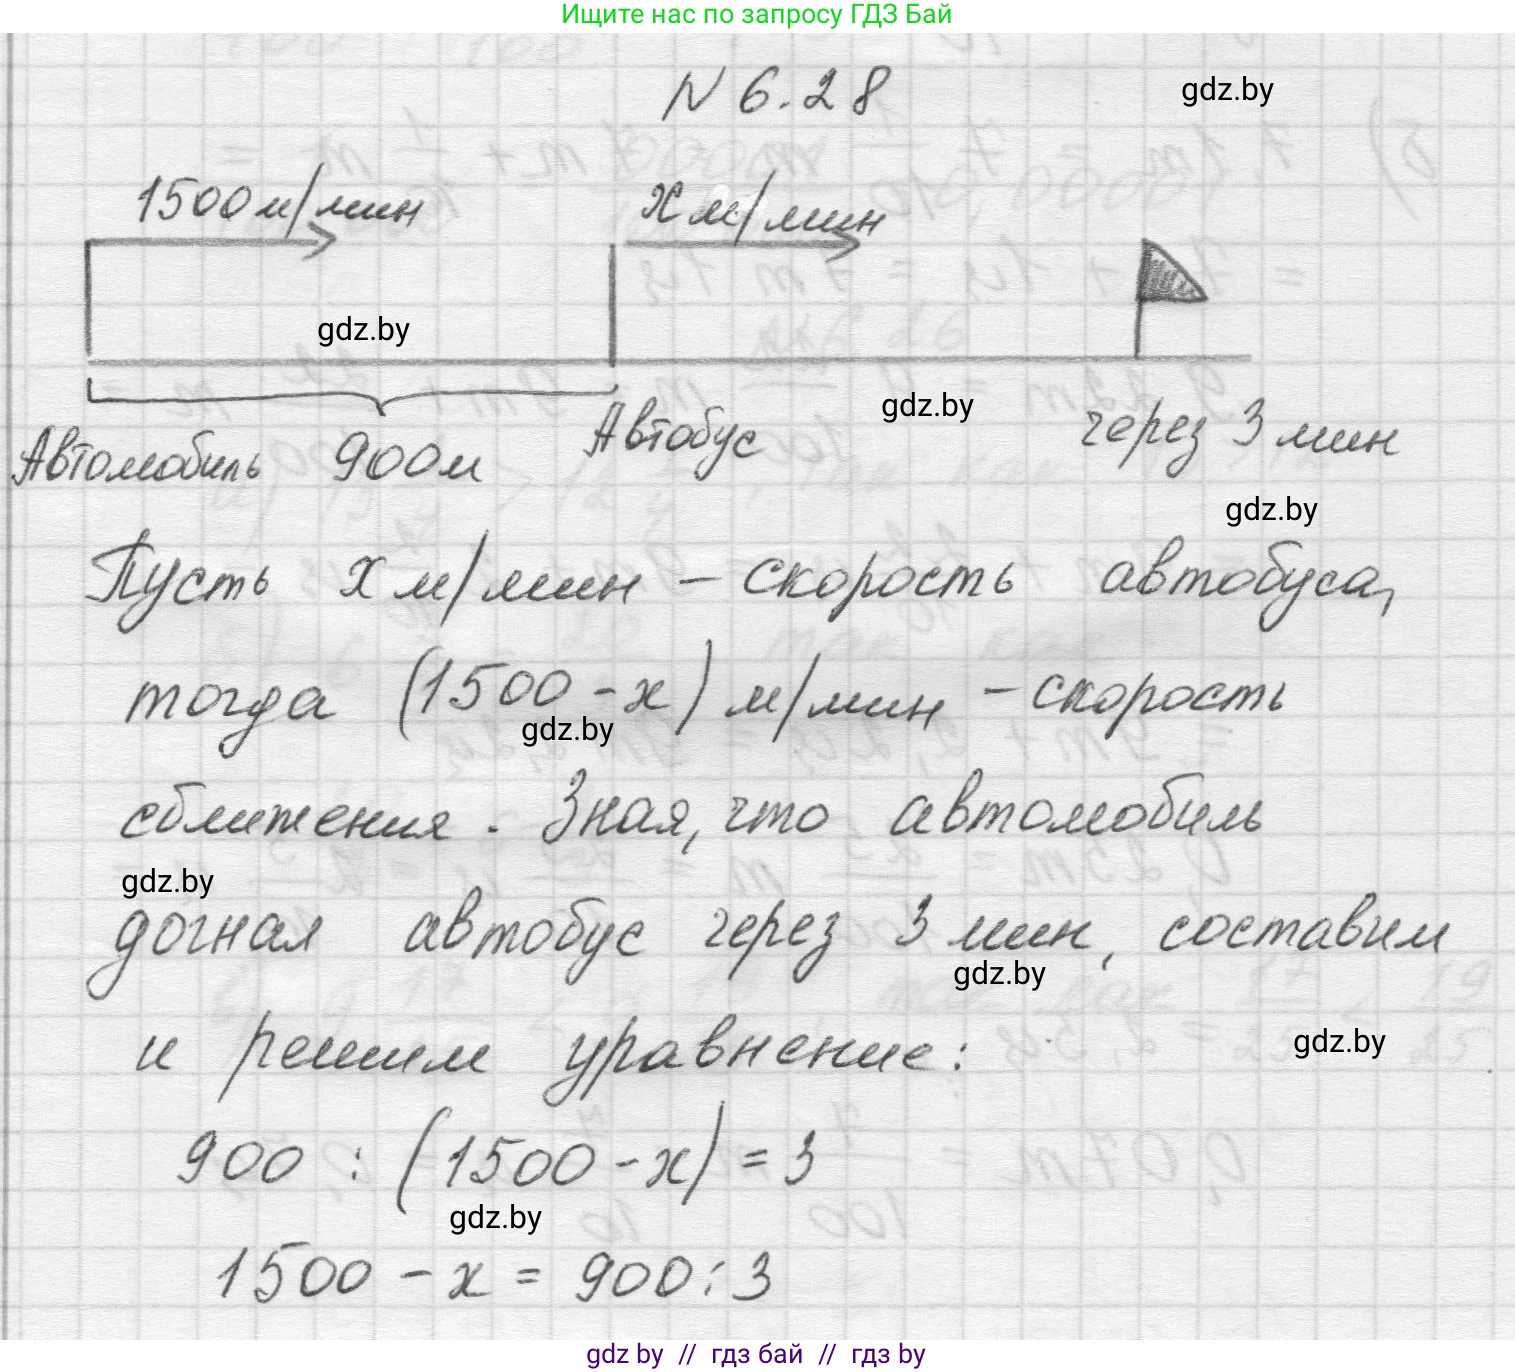 Ищите нас по запросу ГДЗ Бай
N 6.28
gdz.by
1500 м/мин
х м/мин
gdz.by
gdz.by
Автомобиль 900 м Автобус через 3 мин
gdz.by
Пусть х м/мин – скорость автобуса,
тогда (1500 - х) м/мин – скорость
gdz.by
сближения. Зная, что автомобиль
gdz.by
догнал автобус через 3 мин, составим
gdz.by
и решим уравнение:
gdz.by
900 : (1500 - х) = 3
gdz.by
1500 - х = 900 : 3
gdz by // гдз бай // гдз by